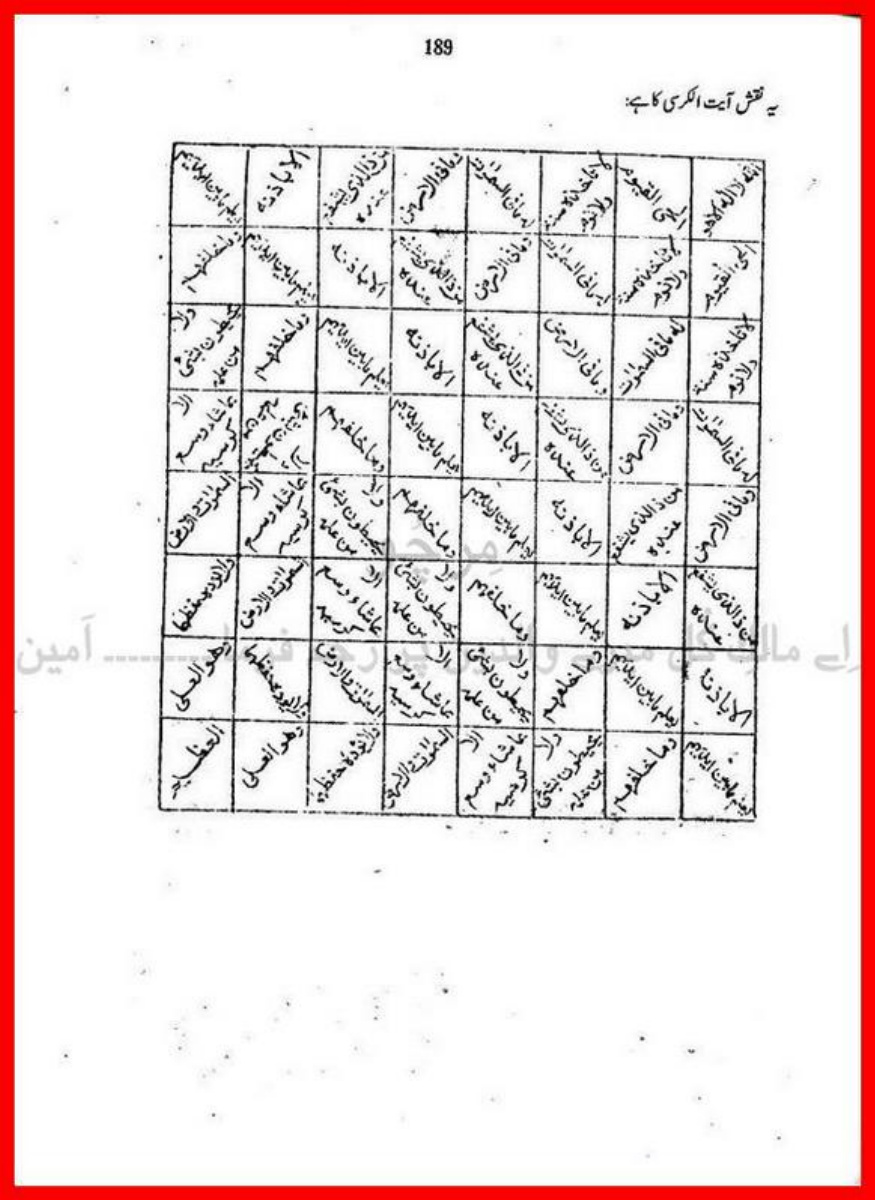 189
یہ نقش آیت الکرسی کا ہے:
اللہ لا الہ الا ھو الحی القیوم لا تاخذہ سنۃ ولا نوم لہ مافی السمٰوٰت ومافی الارض من ذالذی یشفع عندہ الا باذنہ یعلم مابین ایدیہم
الحی القیوم لا تاخذہ سنۃ ولا نوم لہ مافی السمٰوٰت ومافی الارض من ذالذی یشفع عندہ الا باذنہ یعلم مابین ایدیہم وما خلفہم
لا تاخذہ سنۃ ولا نوم لہ مافی السمٰوٰت ومافی الارض من ذالذی یشفع عندہ الا باذنہ یعلم مابین ایدیہم وما خلفہم ولا یحیطون بشئ من علمہ
لہ مافی السمٰوٰت ومافی الارض من ذالذی یشفع عندہ الا باذنہ یعلم مابین ایدیہم وما خلفہم ولا یحیطون بشئ من علمہ الا ماشاء وسع کرسیہ
ومافی الارض من ذالذی یشفع عندہ الا باذنہ یعلم مابین ایدیہم وما خلفہم ولا یحیطون بشئ من علمہ الا ماشاء وسع کرسیہ السمٰوٰت والارض
من ذالذی یشفع عندہ الا باذنہ یعلم مابین ایدیہم وما خلفہم ولا یحیطون بشئ من علمہ الا ماشاء وسع کرسیہ السمٰوٰت والارض ولا یؤدہ حفظہما
الا باذنہ یعلم مابین ایدیہم وما خلفہم ولا یحیطون بشئ من علمہ الا ماشاء وسع کرسیہ السمٰوٰت والارض ولا یؤدہ حفظہما وھو العلی
یعلم مابین ایدیہم وما خلفہم ولا یحیطون بشئ من علمہ الا ماشاء وسع کرسیہ السمٰوٰت والارض ولا یؤدہ حفظہما وھو العلی العظیم
اے مالکِ کُل میرے والدین پر رحم فرما ......... آمین